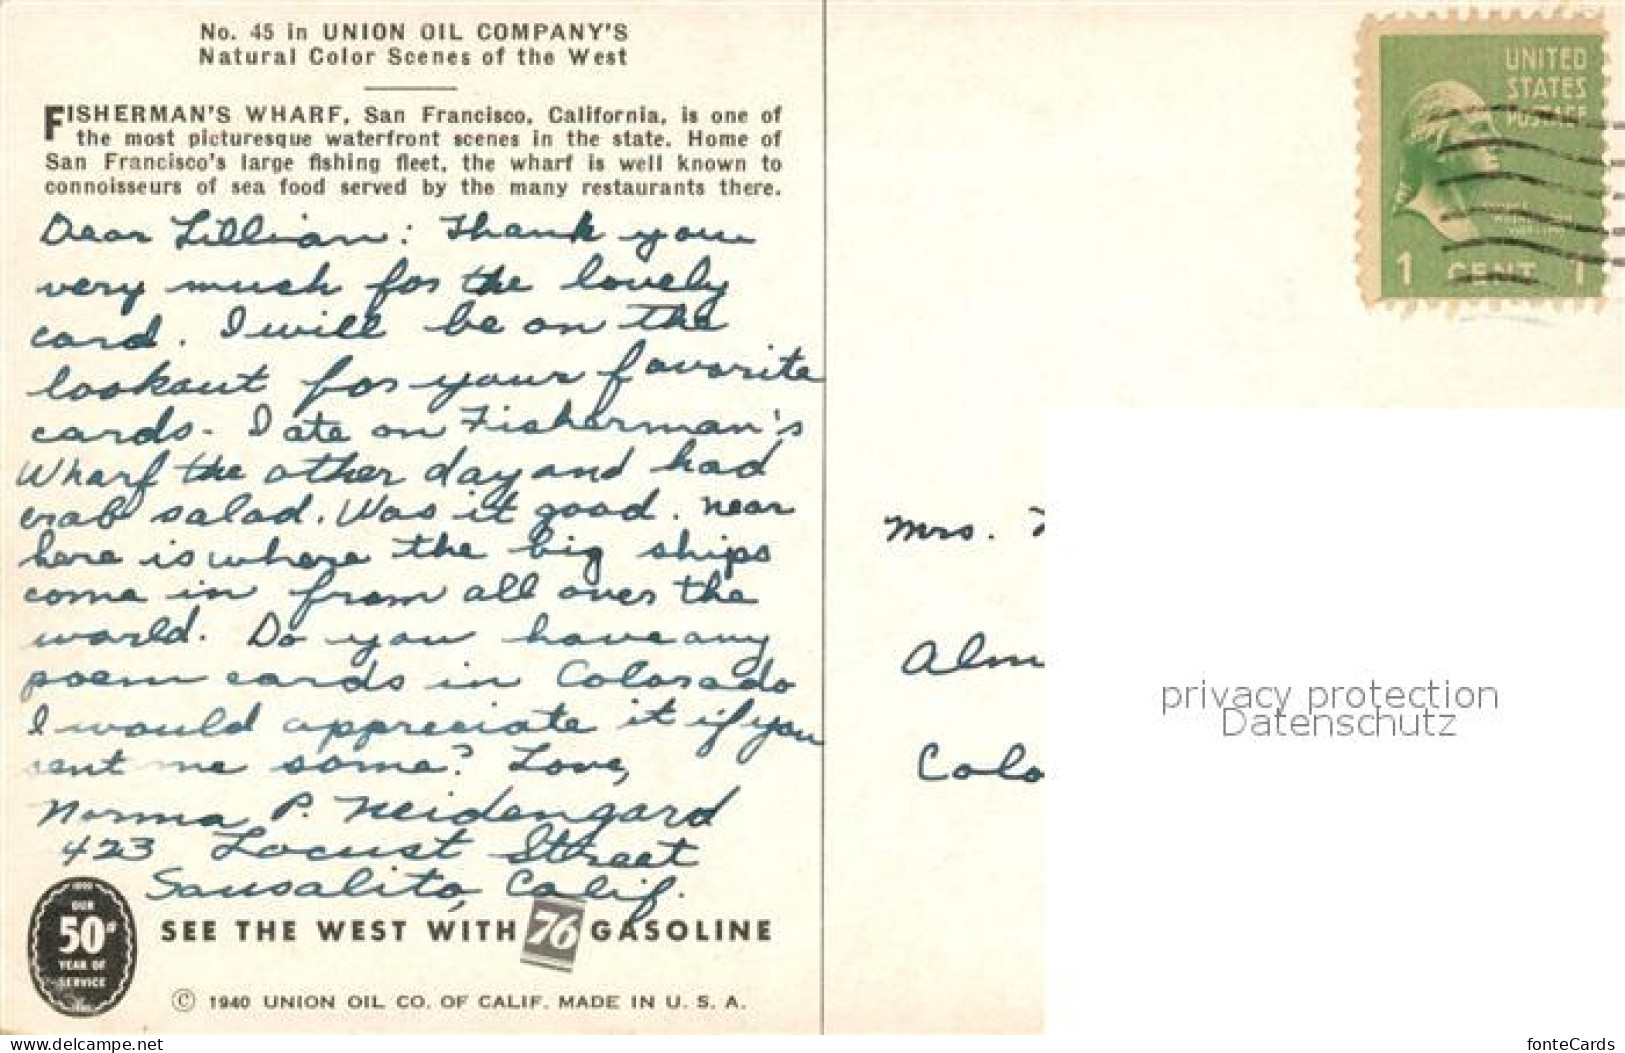 No. 45 in UNION OIL COMPANY'S
Natural Color Scenes of the West
FISHERMAN'S WHARF, San Francisco, California, is one of
the most picturesque waterfront scenes in the state. Home of
San Francisco's large fishing fleet, the wharf is well known to
connoisseurs of sea food served by the many restaurants there.
Dear Lillian: Thank you
very much for the lovely
card. I will be on the
lookout for your favorite
cards. I ate on Fisherman's
Wharf the other day and had
crab salad. Was it good. Near
here is where the big ships
come in from all over the
world. Do you have any
poem cards in Colorado
I would appreciate it if you
sent me some? Love,
Norma P. Neidengard
423 Locust Street
Sausalito, Calif.
1890
OUR
50th
YEAR OF
SERVICE
SEE THE WEST WITH 76 GASOLINE
© 1940 UNION OIL CO. OF CALIF. MADE IN U. S. A.
UNITED
STATES
POSTAGE
1 CENT 1
Mrs.
Alm
Colo
privacy protection
Datenschutz
www.delcampe.net
fonteCards